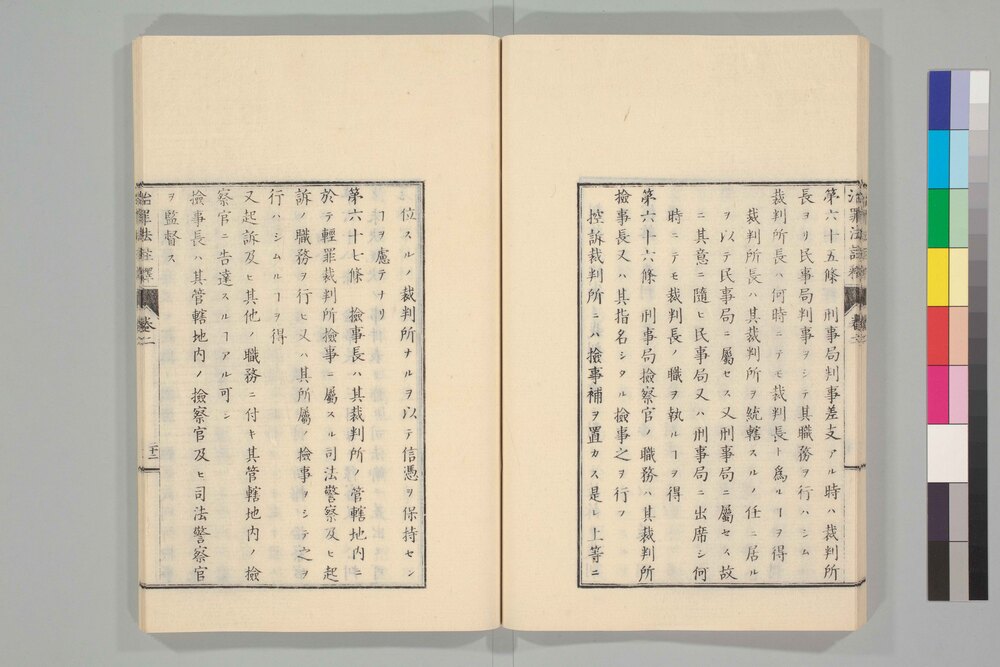 第六十五條 刑事局判事差支アル時ハ裁判所
長ヨリ民事局判事ヲシテ其職務ヲ行ハシム
裁判所長ハ何時ニテモ裁判長ト爲ルヿヲ得
裁判所長ハ其裁判所ヲ統轄スルノ任ニ居ル
ヲ以テ民事局ニ屬セス又刑事局ニ屬セス故
ニ其意ニ隨ヒ民事局又ハ刑事局ニ出席シ何
時ニテモ裁判長ノ職ヲ執ルヿヲ得
第六十六條 刑事局檢察官ノ職務ハ其裁判所
檢事長又ハ其指名シタル檢事之ヲ行フ
控訴裁判所ニハ檢事補ヲ置カス是レ上等ニ
位スルノ裁判所ナルヲ以テ信憑ヲ保持セン
ヿヲ慮テナリ
第六十七條 檢事長ハ其裁判所ノ管轄地内ニ
於テ輕罪裁判所檢事ニ屬スル司法警察及ヒ起
訴ノ職務ヲ行ヒ又ハ其所屬ノ檢事ヲシテ之ヲ
行ハシムルヿヲ得
又起訴及ヒ其他ノ職務ニ付キ其管轄地内ノ檢
察官ニ告達スルヿアル可シ
檢事長ハ其管轄地内ノ檢察官及ヒ司法警察官
ヲ監督ス
治罪法註釋 卷二 二十二